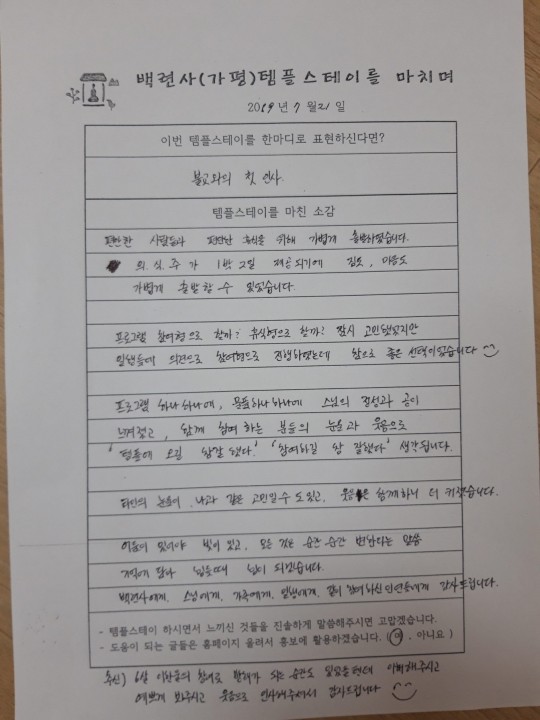 백련사(가평)템플스테이를 마치며
2019년 7월 21일
이번 템플스테이를 한마디로 표현하신다면?
불교와의 첫 인사
템플스테이를 마친 소감
편안한 사람들과 편안한 휴식을 위해 가볍게 출발하였습니다.
의.식.주가 1박2일 제공되기에 짐도, 마음도
가볍게 출발할 수 있었습니다.
프로그램 참여형으로 할까? 휴식형으로 할까? 잠시 고민했었지만
일행들에 의견으로 참여형으로 진행하였는데 참으로 좋은 선택이었습니다
프로그램 하나하나에, 문품하나하나에 스님의 정성과 공이
느껴졌고, 함께 참여하는 분들의 눈물과 웃음으로
'템플에 오길 참잘했다.' '참여하길 참 잘했다' 생각됩니다.
타인의 눈물이 나와 같은 고민일수도있고, 웃음은 함께하니 더 커졌습니다.
어둠이 있어야 빛이 있고, 모든 것은 순간 순간 변한다는 말씀
기억에 담아 힘들때 힘이 되겠습니다.
백련사에게, 스님에게, 가족에게, 일행에게, 같이 참여하신 인연들에게 감사드립니다.
- 템플스테이 하시면서 느끼신 것들을 진솔하게 말씀해주시면 고맙겠습니다.
- 도움이 되는 글들은 홈페이지 올려서 홍보에 활용하겠습니다. (예, 아니요)
추신) 6살 참여로 방해가 되는 순간도 있었을텐데 이해해주시고
예쁘게 봐주시고 웃음으로 인사해주셔서 감사드립니다